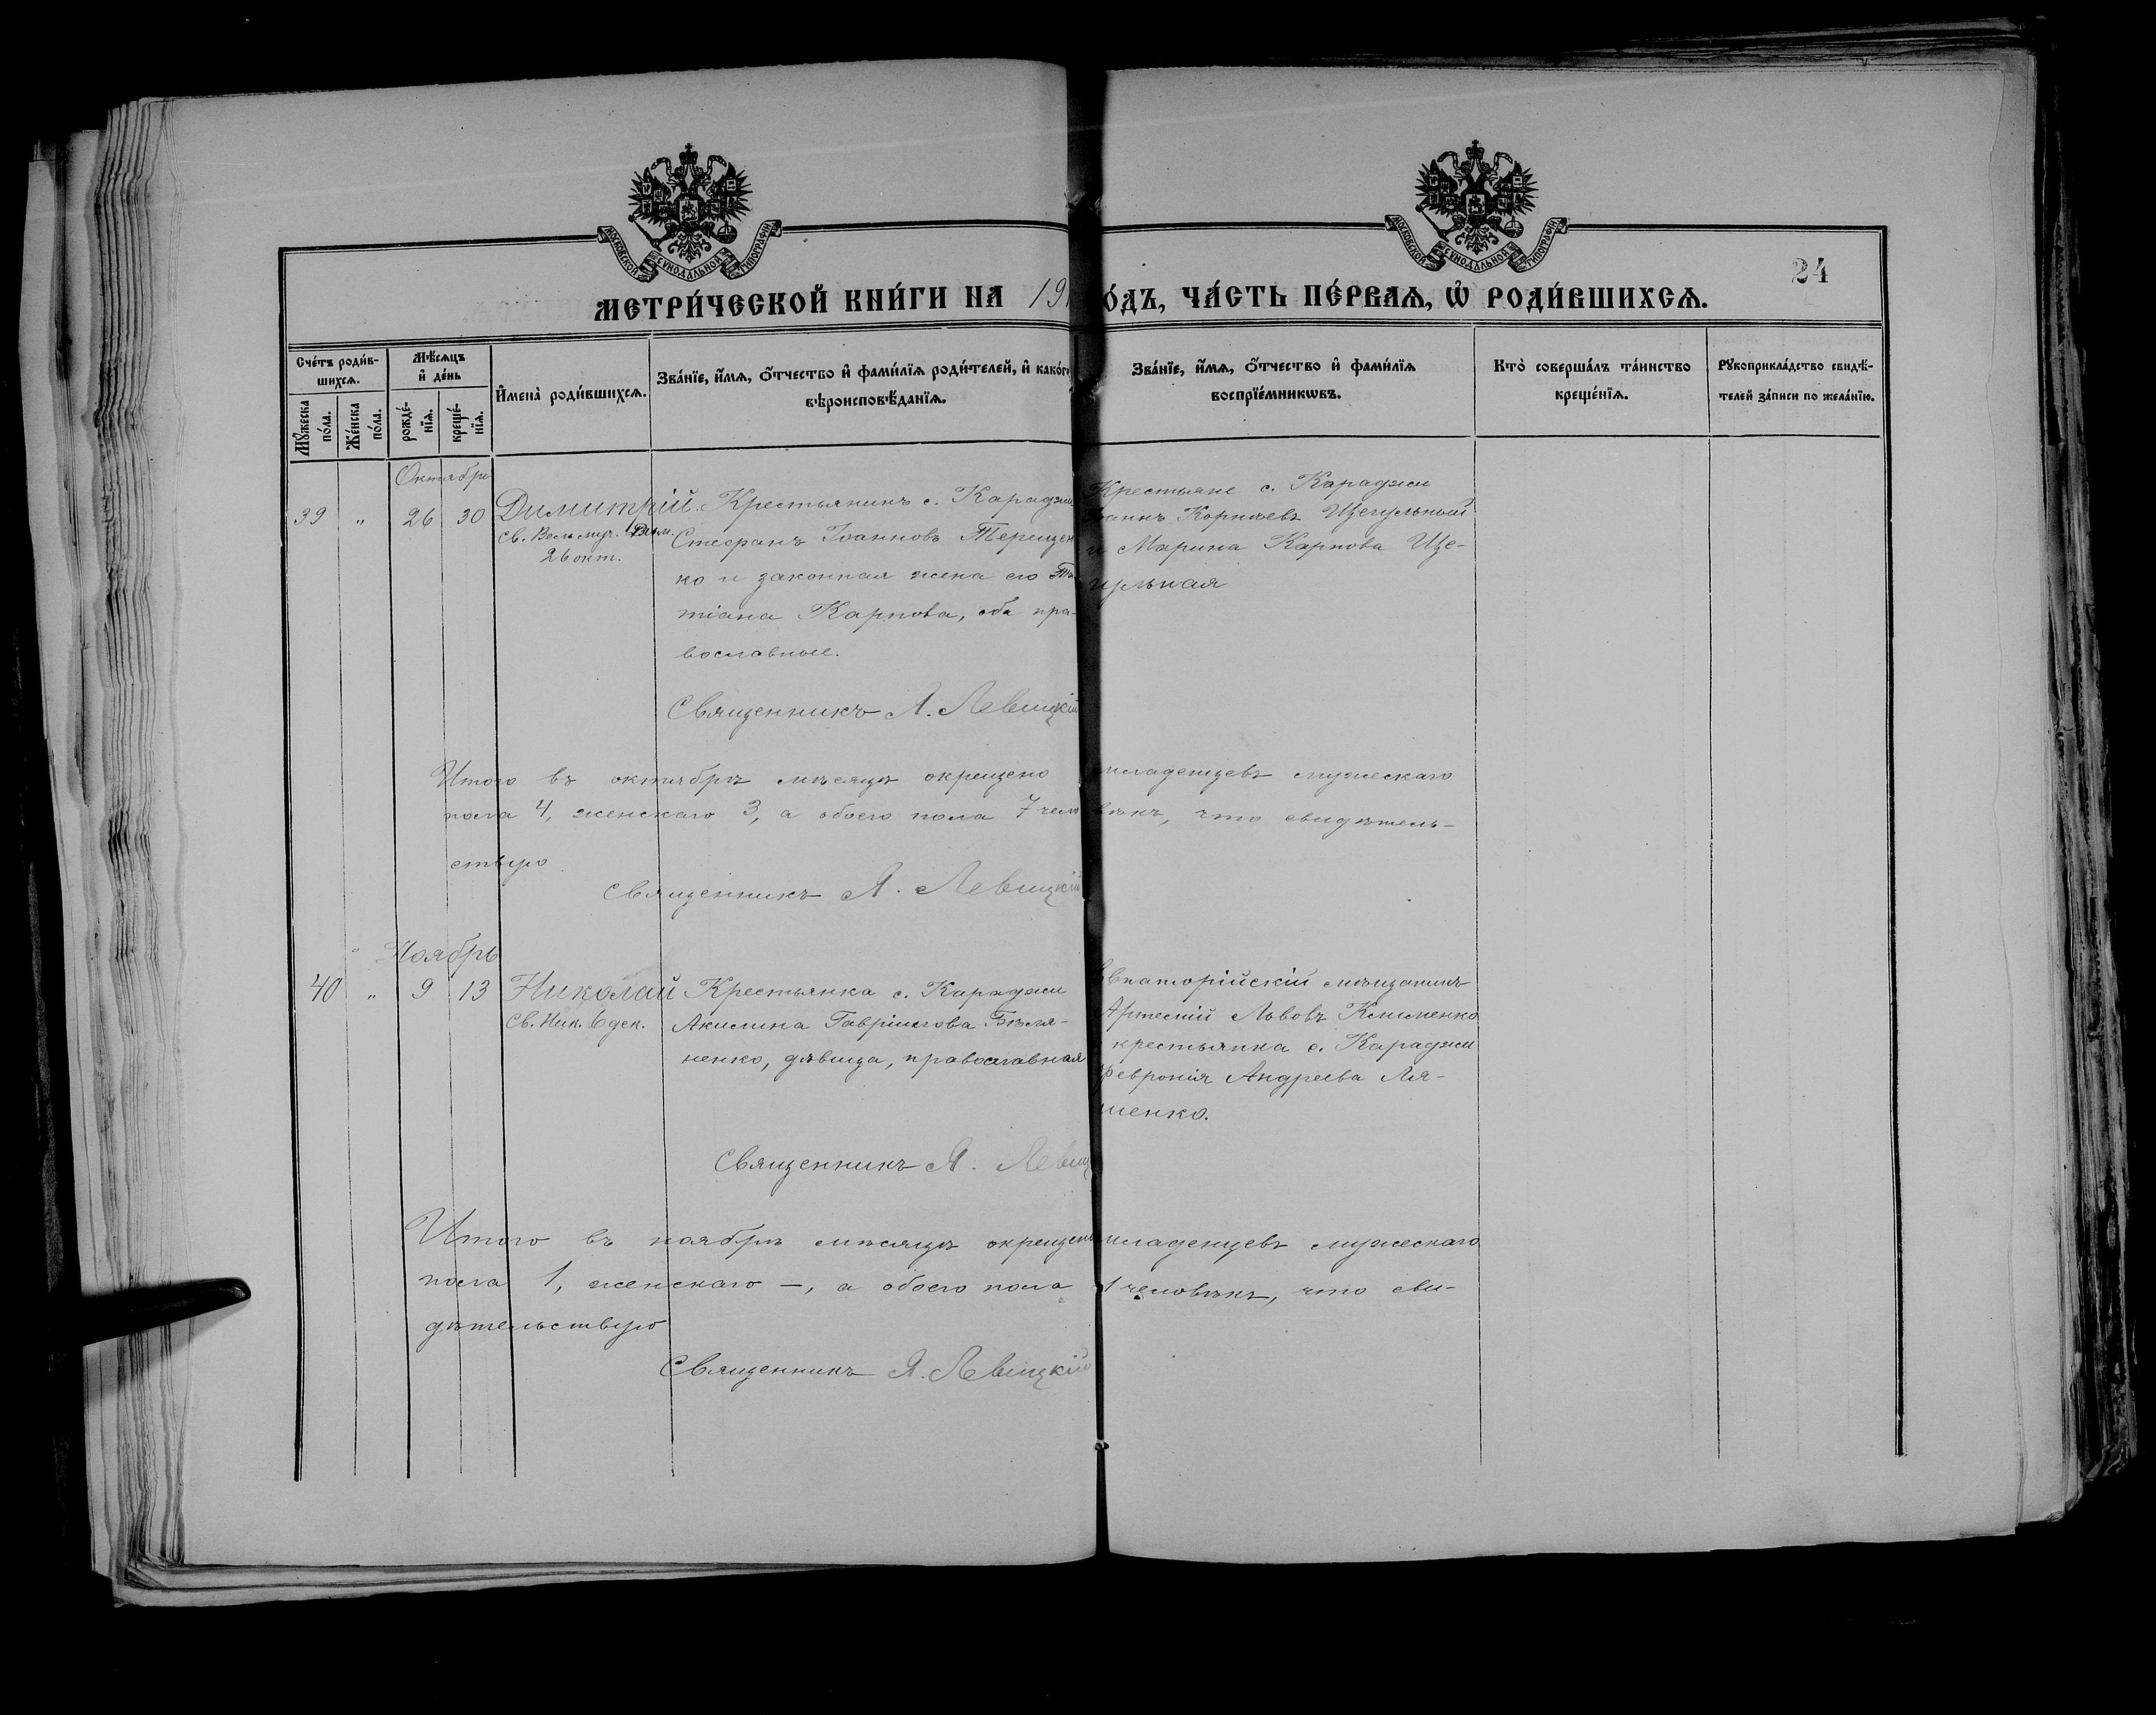 МОСКОВСКОЙ СѴНОДАЛЬНОЙ ТИПОГРАФІИ
МОСКОВСКОЙ СѴНОДАЛЬНОЙ ТИПОГРАФІИ
24
МЕТРИ́ЧЕСКОЙ КНИ́ГИ НА 191 О́ДЪ, ЧА́СТЬ ПЕ́РВАѦ, Ѽ РОДИ́ВШИХСѦ.
Сче́тъ роди́в-
шихсѧ.
Мꙋ́жеска по́ла.
Же́нска по́ла.
Мѣ́сѧцъ
и҆ де́нь
рожде́-
нїѧ.
креще́-
нїѧ.
И҆мена̀ роди́вшихсѧ.
Зва́нїе, и҆́мѧ, ѻ҆́тчество и҆ фами́лїѧ роди́телей, и҆ како́г
вѣроисповѣ́данїѧ.
Зва́нїе, и҆́мѧ, ѻ҆́тчество и҆ фами́лїѧ
воспрїе́мникѡвъ.
Кто̀ соверша́лъ та́инство
креще́нїѧ.
Рꙋкоприкла́дство свидѣ́-
телей за́писи по жела́нїю.
Октябрь
39 " 26 30 Димитрій.
св. Вель муч. Дим.
26 окт.
Крестьянинъ с. Караджи
Стефанъ Іоанновъ Терещен
ко и законная жена его Та
тіана Карпова, оба пра-
вославные.
Священникъ Я. Левицкій
Крестьяне с. Караджи
Іоаннъ Корнѣевъ Щегульный
и Марина Карпова Ще-
гульная
Итого въ октябрѣ мѣсяцѣ окрещено младенцевъ мужескаго
пола 4, женскаго 3, а обоего пола 7 человѣкъ, что свидѣтель-
ствую
Священникъ Я. Левицкій
Ноябрь
40 " 9 13 Николай
Св. Ник. 6 дек.
Крестьянка с. Караджи
Акилина Гавріилова Бѣля-
ненко, дѣвица, православная
Священникъ Я. Левиц
Евпаторійскій мѣщанинъ
Артемій Львовъ Клименко
и крестьянка с. Караджи
Февронія Андреева Ля-
шенко.
Итого въ ноябрѣ мѣсяцѣ окрещено младенцевъ мужескаго
пола 1, женскаго —, а обоего пола 1 человѣкъ, что сви-
дѣтельствую
Священникъ Я. Левицкій